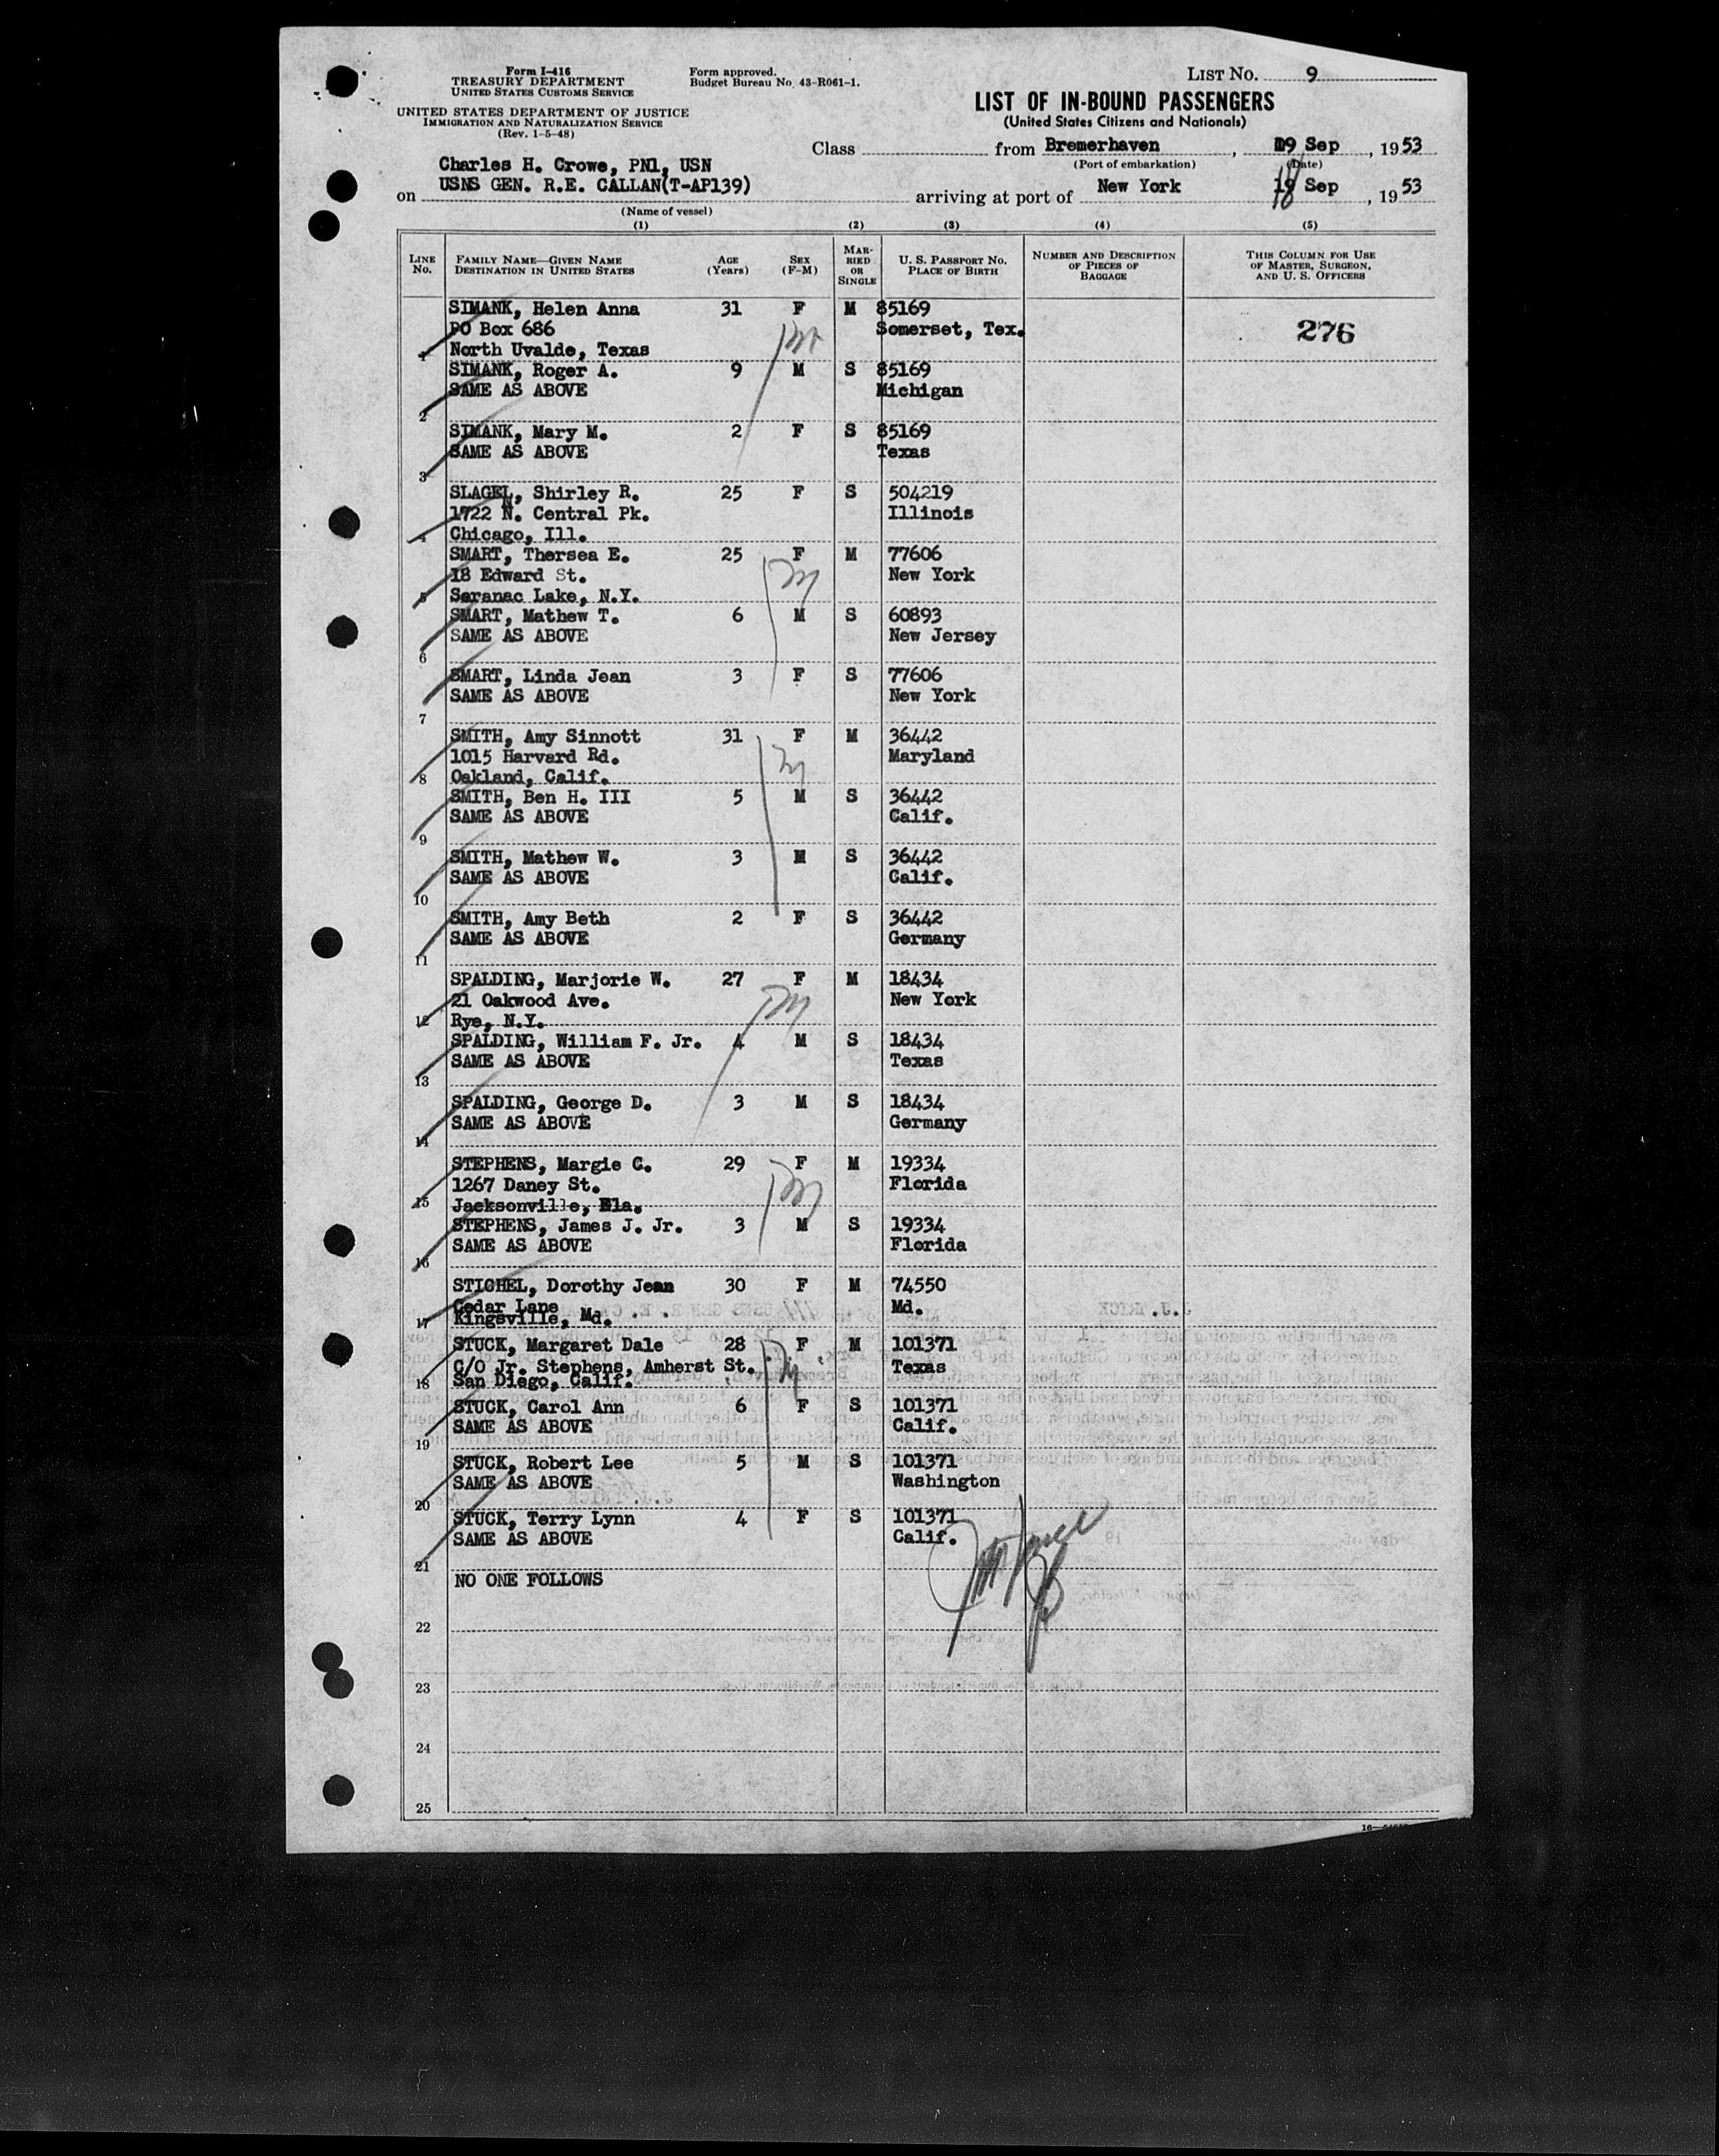 Form I-416
TREASURY DEPARTMENT
UNITED STATES CUSTOMS SERVICE
UNITED STATES DEPARTMENT OF JUSTICE
IMMIGRATION AND NATURALIZATION SERVICE
(Rev. 1-5-48)
Form approved.
Budget Bureau No. 43-R061-1.
LIST No. 9
LIST OF IN-BOUND PASSENGERS
(United States Citizens and Nationals)
Class from Bremerhaven, 09 Sep, 1953
(Port of embarkation) (Date)
Charles H. Crowe, PN1, USN
on USNS GEN. R.E. CALLAN(T-AP139) arriving at port of New York 19 Sep, 1953
18
(Name of vessel)
(1) (2) (3) (4) (5)
LINE No. FAMILY NAME—GIVEN NAME DESTINATION IN UNITED STATES AGE (Years) SEX (F-M) MARRIED OR SINGLE U. S. PASSPORT No. PLACE OF BIRTH NUMBER AND DESCRIPTION OF PIECES OF BAGGAGE THIS COLUMN FOR USE OF MASTER, SURGEON, AND U. S. OFFICERS
SIMANK, Helen Anna 31 F M 85169
PO Box 686 Somerset, Tex. 276
1 North Uvalde, Texas
SIMANK, Roger A. 9 M S 85169
SAME AS ABOVE Michigan
2
SIMANK, Mary M. 2 F S 85169
SAME AS ABOVE Texas
3
SLAGEL, Shirley R. 25 F S 504219
1722 N. Central Pk. Illinois
4 Chicago, Ill.
SMART, Thersea E. 25 F M 77606
18 Edward St. New York
5 Saranac Lake, N.Y.
SMART, Mathew T. 6 M S 60893
SAME AS ABOVE New Jersey
6
SMART, Linda Jean 3 F S 77606
SAME AS ABOVE New York
7
SMITH, Amy Sinnott 31 F M 36442
1015 Harvard Rd. Maryland
8 Oakland, Calif.
SMITH, Ben H. III 5 M S 36442
SAME AS ABOVE Calif.
9
SMITH, Mathew W. 3 M S 36442
SAME AS ABOVE Calif.
10
SMITH, Amy Beth 2 F S 36442
SAME AS ABOVE Germany
11
SPALDING, Marjorie W. 27 F M 18434
21 Oakwood Ave. New York
12 Rye, N.Y.
SPALDING, William F. Jr. 4 M S 18434
SAME AS ABOVE Texas
13
SPALDING, George D. 3 M S 18434
SAME AS ABOVE Germany
14
STEPHENS, Margie C. 29 F M 19334
1267 Daney St. Florida
15 Jacksonville, Fla.
STEPHENS, James J. Jr. 3 M S 19334
SAME AS ABOVE Florida
16
STICHEL, Dorothy Jean 30 F M 74550
Cedar Lane Md.
17 Kingsville, Md.
STUCK, Margaret Dale 28 F M 101371
C/O Jr. Stephens, Amherst St. Texas
18 San Diego, Calif.
STUCK, Carol Ann 6 F S 101371
SAME AS ABOVE Calif.
19
STUCK, Robert Lee 5 M S 101371
SAME AS ABOVE Washington
20
STUCK, Terry Lynn 4 F S 101371
SAME AS ABOVE Calif.
21
NO ONE FOLLOWS
22
23
24
25